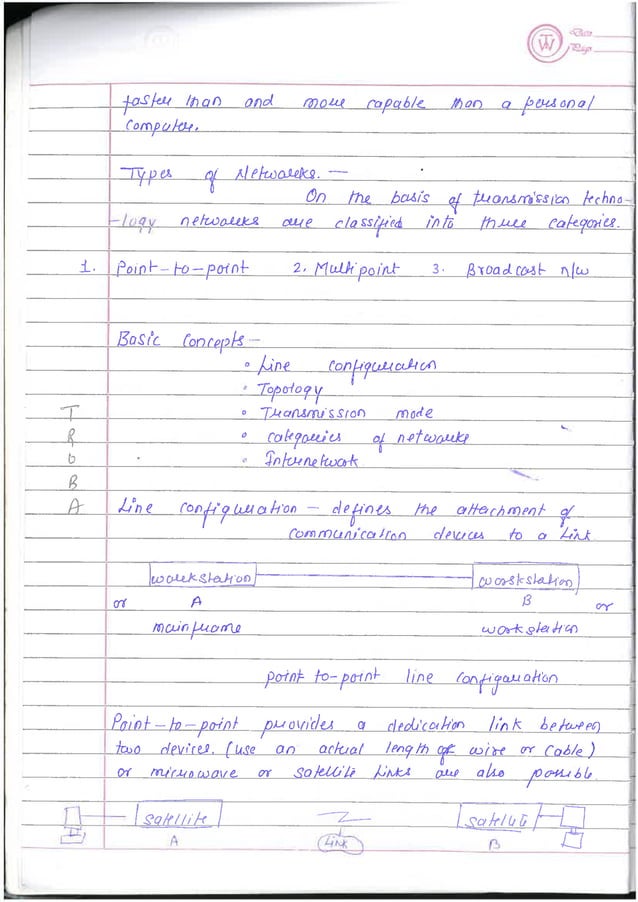 TW
Date
Page
faster than and more capable than a personal
computer.
Types of Networks. —
On the basis of transmission techno-
-logy networks are classified into three categories.
1. Point-to-point 2. Multipoint 3. Broadcast n/w
Basic Concepts —
• Line configuration
• Topology
• Transmission mode
• categories of networks
• Internetwork
T
R
O
B
A
Line configuration — defines the attachment of
communication devices to a Link
workstation workstation
or A B or
mainframe workstation
point to-point line configuration
Point-to-point provides a dedication link between
two devices. (use an actual length of wire or cable)
or microwave or satellite links are also possible.
satellite satellite
A Link B